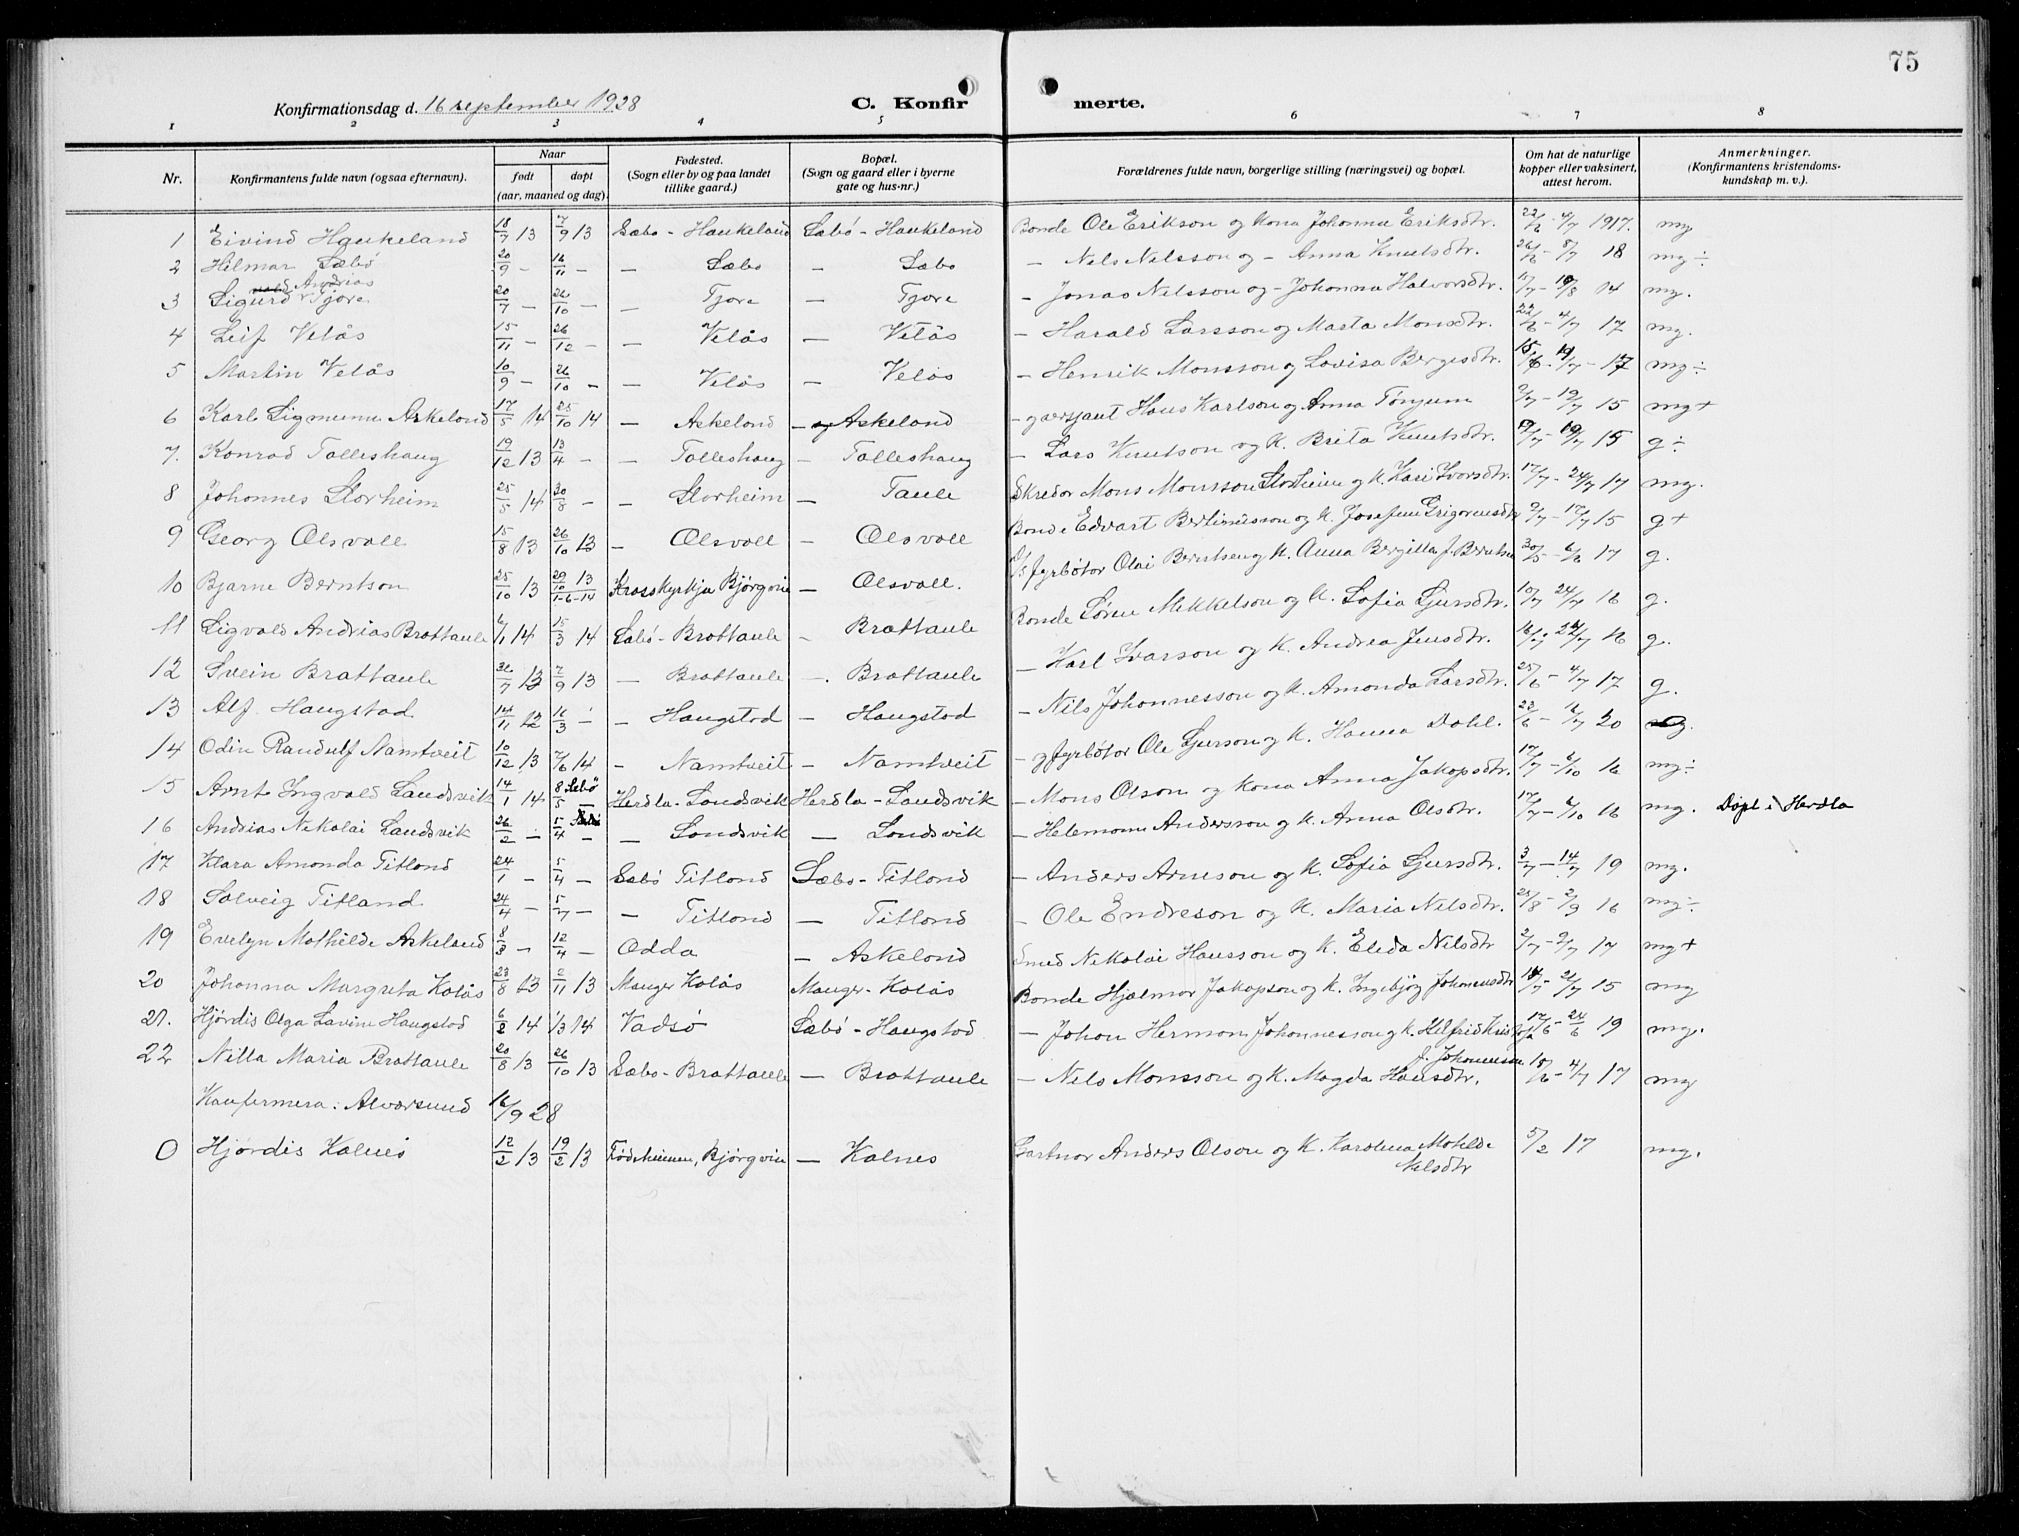 75
Konfirmationsdag d. 16 september 1928 C. Konfir merte.
1 2 3 4 5 6 7 8
Nr. Konfirmantens fulde navn (ogsaa efternavn). Naar født døpt (aar, maaned og dag). Fødested. (Sogn eller by og paa landet tillike gaard.) Bopæl. (Sogn og gaard eller i byerne gate og hus-nr.) Forældrenes fulde navn, borgerlige stilling (næringsvei) og bopæl. Om hat de naturlige kopper eller vaksinert, attest herom. Anmerkninger. (Konfirmantens kristendoms-kundskap m. v.).
1 Eivind Haukeland 18/7 13 7/9 13 Sæbø - Haukeland Sæbø - Haukeland Bonde Ole Erikson og kona Johanna Eriksdtr. 22/6 - 4/7 1917. mg
2 Hilmar Sæbø 20/9 - 16/11 - — Sæbø — Sæbø — Nels Nilsson og - Anna Knutsdtr. 26/6 - 8/7 18 mg ÷
3 Sigurd Andrias Tjore 20/7 - 26/10 - — Tjore — Tjore — Jonas Nilsson og - Johanna Halvorsdtr. 17/7 - 19/8 14 mg.
4 Leif Velås 15/11 - 26/12 - — Velås — Velås — Harald Larsson og Marta Monsdtr. 22/6 - 4/7 17 mg.
5 Martin Velås 10/9 - 26/10 - — Velås — Velås — Henrik Monsson og Lovisa Bergesdtr. 17 mg ÷
6 Karl Sigmunn Askeland 17/5 14 25/10 14 — Askeland — Askeland — gversjant Hans Karlson og Anna Tonjum 2/7 - 12/7 15 mg+
7. Konrad Tolleshaug 19/12 13 13/4 - — Tolleshaug — Tolleshaug — Lars Knutson og K. Brita Knutsdtr. 15 g ÷
8 Johannes Storheim 25/5 14 30/8 - — Storheim — Taule Skredar Mons Monsson Storheim og K. Kari Ivarsdtr. 17/7 - 24/7 17 mg.
9 Georg Olsvoll 15/8 13 26/10 13 — Olsvoll — Olsvoll Bonde Edvart Bertinusson og K. Josefine Grigoriusdtr 9/7 - 17/7 15 g+
10 Bjarne Berntson 25/10 13 29/10 13 1-6-14 Krosskyrkja Bjørgvin — Olsvoll. fyrbøtar Olai Berntsen og K. Anna Bergitta f. Berntsen 30/5 - 6/6 17 g.
11 Sigvald Andrias Brattaule 6/1 14 15/3 14 Sæbø - Brattaule — Brattaule Bonde Søren Mikkelson og K. Sofia Sjursdtr. 10/7 24/7 16 g.
12 Svein Brattaule 31/7 13 7/9 13 — Brattaule — Brattaule — Karl Ivarson og K. Andrea Jensdtr. 16/7 - 24/7 16 g.
13 Alf Haugstad 14/11 12 16/3 - — Haugstad — Haugstad — Nils Johannesson og K. Amanda Larsdtr. 25/6 - 4/7 17 g.
14 Odin Randulf Namtveit 10/12 13 7/6 14 — Namtveit — Namtveit — og fyrbøtar Ole Sjurson og K. Hanna Dahl. 22/6 - 6/7 20
15 Arnt Ingvald Landsvik 14/1 14 8/5 - Sæbø Herdla - Landsvik Herdla - Landsvik — Mons Olson og kona Anna Jakopsdtr. 17/7 - 6/10 16 mg ÷
16 Andrias Nikolai Landsvik 26/2 - 5/4 - — Landsvik — Landsvik — Helemann Andersson og K. Anna Olsdtr. 17/7 - 6/10 16 mg. Døpt i Herdla
17 Klara Amonda Titland 24/1 - 5/4 - Sæbø Titland Sæbø - Titland — Anders Arneson og K. Sofia Sjursdtr. 3/7 - 14/7 19 mg.
18 Solveig Titland 24/4 - 5/7 - — Titland — Titland — Ole Endreson og K. Maria Nilsdtr. 25/8 - 2/9 16 mg ÷
19 Evelyn Mathilde Askeland 8/3 - 12/4 - Odda — Askeland Smed Nikolai Hansson og K. Elida Nilsdtr 2/7 - 9/7 17 mg+
20 Johanna Margreta Kolås 23/8 13 2/11 13 Manger Kolås Manger - Kolås Bonde Hjalmar Jakopson og K. Ingebjøg Johannesdtr 15 mg
21. Hjørdis Olga Lavine Haugstad 6/2 14 1/3 14 Vadsø Sæbø - Haugstad — Johan Herman Johannesson og K. Helfrid Kristofa f. Johannesen 17/6 - 24/6 19 mg.
22 Nilla Maria Brattaule 20/8 13 26/10 13 Sæbø - Brattaule — Brattaule — Nils Monsson og K. Magda Hansdtr. 18/6 - 4/7 17 mg
Konfermera: Alversund 16/9 28
0 Hjørdis Kalnes 12/2 13 19/2 13 Fødsheimen, Bjørgvin — Kalnes Gartnar Anders Olson og K. Karolina Matilde Nilsdtr 5/2 17 mg.